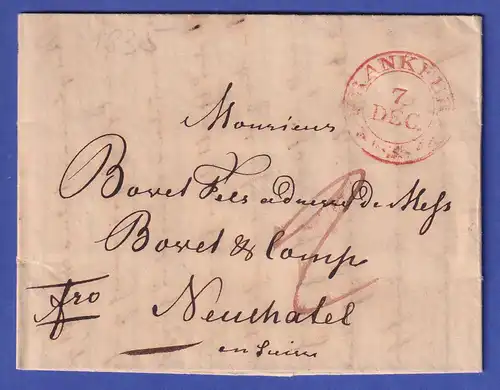 1835
FRANKFURT
7
DEC.
1835
Monsieur
Bovet Fils adressé de Mess
Bovet & Comp
fro
Neuchatel
en Suisse